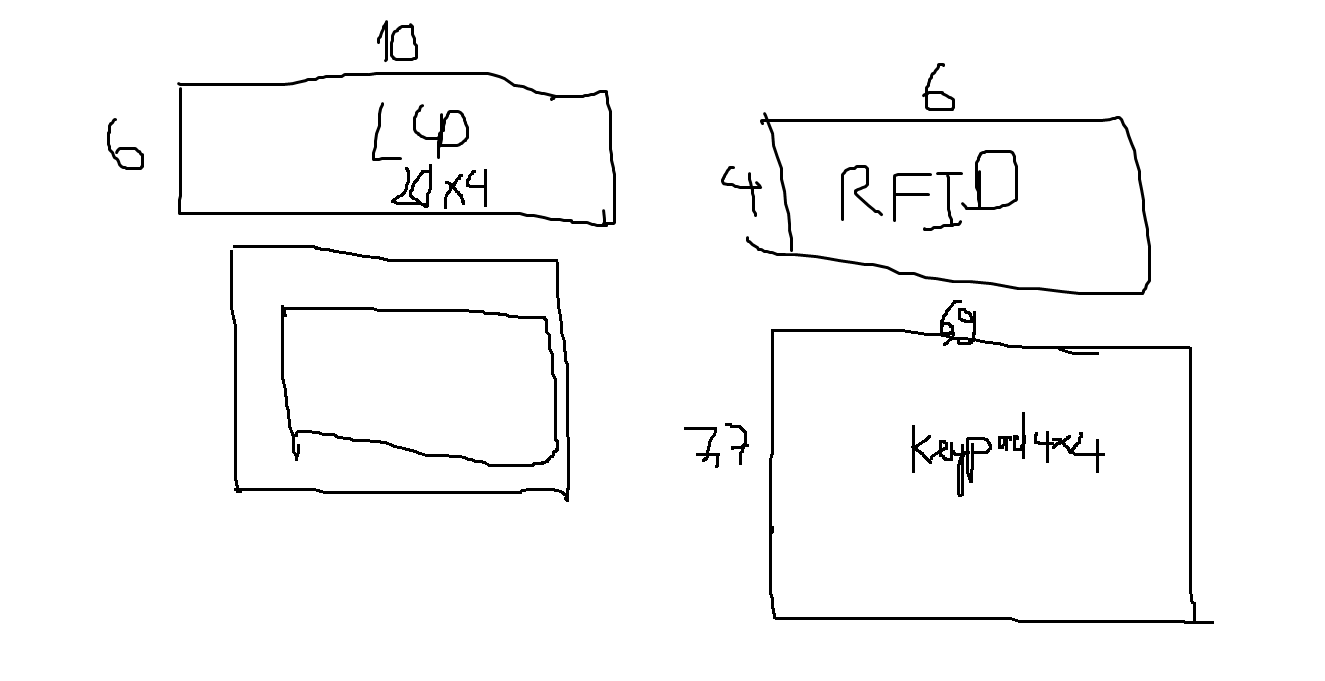 10
6
LCD
20x4
6
4
RFID
6,9
7,7
Keypad 4x4